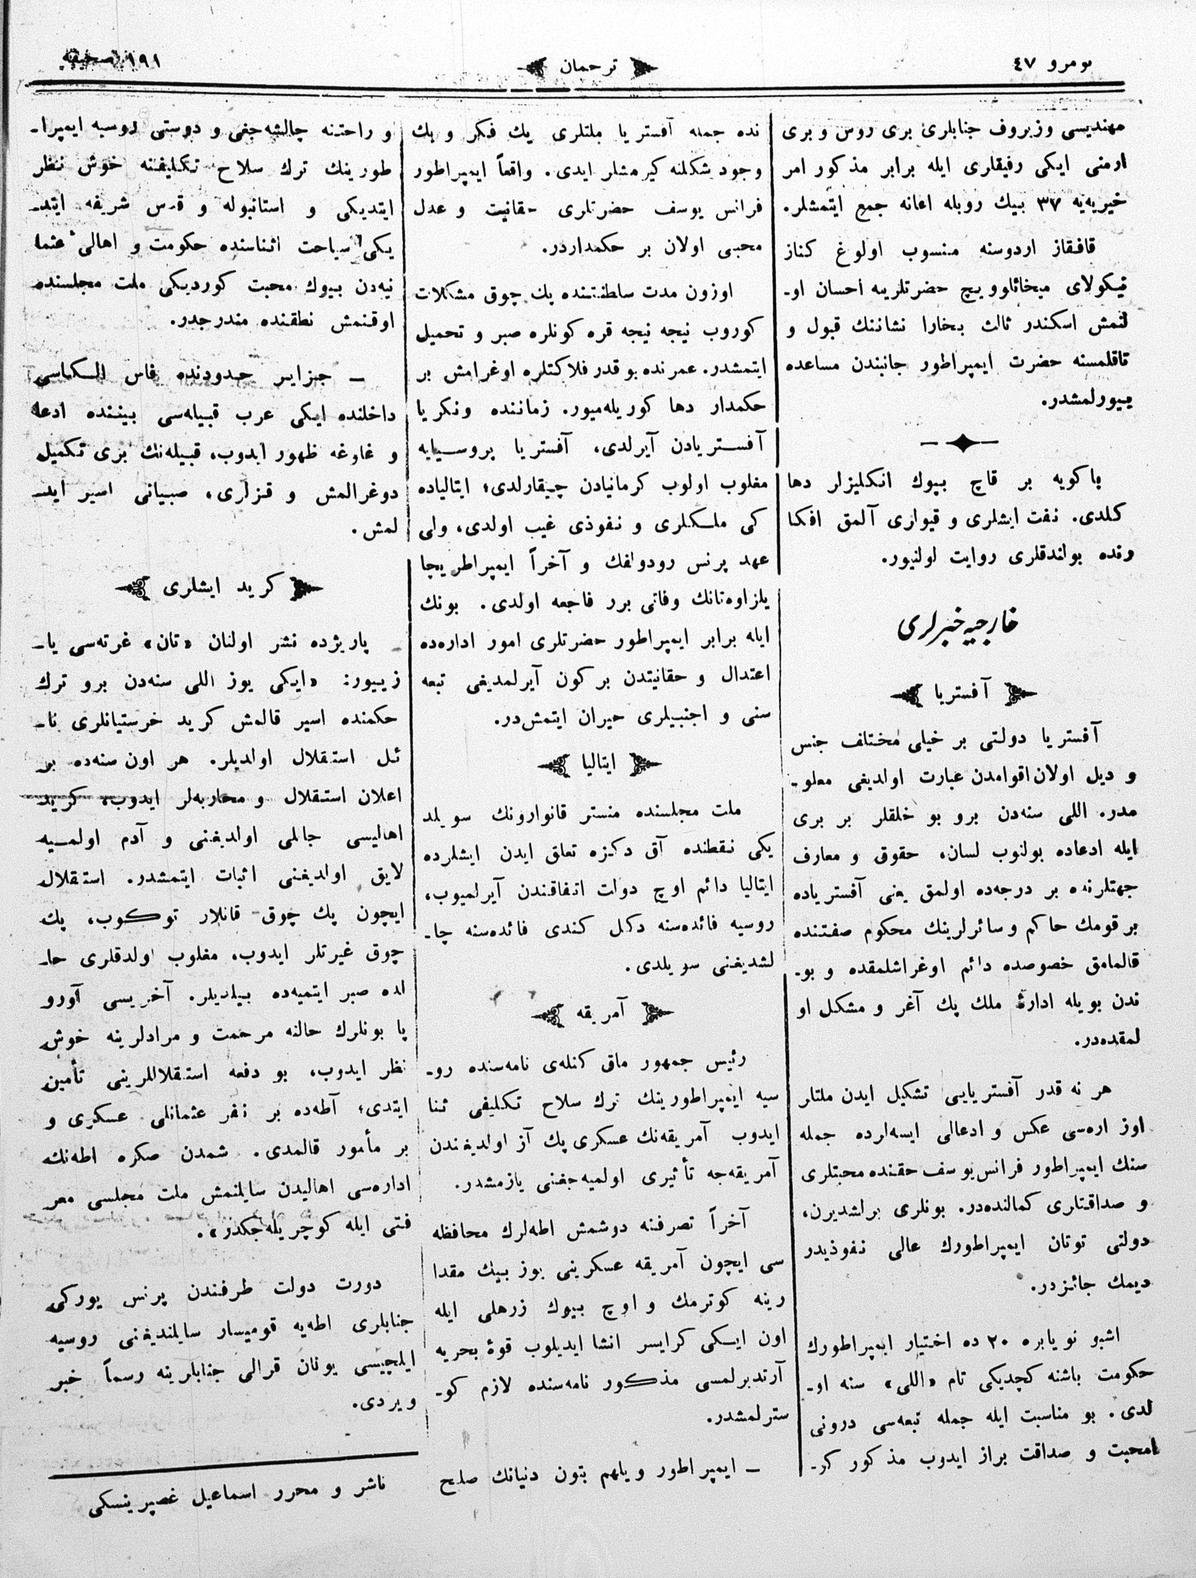 نومرو ٤٧
ترجمان
١٩١ صحيفه
مهنديسی وزيروف جنابلری بری روس و بری
ارمنی ايكی رفيقلری ايله برابر مذكور امر
خيريه‌يه ٣٧ بيك روبله اعانه جمع ايتمشلر.
قافقاز اردوسنه منسوب اولوغ كناز
نيكولای ميخائلوويچ حضرتلرينه احسان او-
لنمش اسكندر ثالث بخارا نشاننك قبول و
تاقلمسنه حضرت ايمپراطور جانبندن مساعده
بيورلمشدر.
باكويه بر قاچ بيوك انكليزلر دها
كلدی. نفت ايشلری و قيولری آلمق افكا
رنده بولندقلری روايت اولنيور.
خارجيه خبرلری
آفستريا
آفستريا دولتی بر خيلی مختلف جنس
و ديل اولان اقوامدن عبارت اولديغی معلو-
مدر. اللی سنه‌دن برو بو خلقلر بر بری
ايله ادعاده بولنوب لسان، حقوق و معارف
جهتلرنده بر درجه‌ده اولمق يعنی آفستريا‌ده
بر قومك حاكم و سائرلرينك محكوم صفتنده
قالمامق خصوصده دائم اوغراشلمقده و بو-
ندن بويله ادارۀ ملك پك آغر و مشكل او
لمقده‌در.
هر نه قدر آفستريايی تشكيل ايدن ملتلر
اوز اره‌سی عكس و ادعالی ايسه‌لرده جمله
سنك ايمپراطور فرانس يوسف حقنده محبتلری
و صداقتلری كمالنده‌در. بونلری برلشديرن،
دولتی توتان ايمپراطورك عالی نفوذيدر
ديمك جائزدر.
اشبو نويابره ٢٠ ده اختيار ايمپراطورك
حكومت باشنه كچديكی تام «اللی» سنه او-
لدی. بو مناسبت ايله جمله تبعه‌سی درونی
محبت و صداقت براز ايدوب مذكور كر-
نده جمله آفستريا ملتلری يك فكر و يك
وجود شكلنه كيرمشلر ايدی. واقعاً ايمپراطور
فرانس يوسف حضرتلری حقانيت و عدل
محبی اولان بر حكمداردر.
اوزون مدت سلطنتنده پك چوق مشكلات
كوروب نيجه نيجه قره كونلره صبر و تحميل
ايتمشدر. عمرنده بو قدر فلاكتلره اوغرامش بر
حكمدار دها كوريله‌ميور. زماننده ونكريا
آفستريادن آيرلدی، آفستريا پروسيايه
مغلوب اولوب كرمانيادن چيقارلدی؛ ايتاليا‌ده
كی ملكلری و نفوذی غيب اولدی، ولی
عهد پرنس رودولفك و آخراً ايمپراطريچا
يلزاوه‌تانك وفاتی برر فاجعه اولدی. بونك
ايله برابر ايمپراطور حضرتلری امور اداره‌ده
اعتدال و حقانيتدن بر كون آيرلمديغی تبعه
سنی و اجنبيلری حيران ايتمش‌در.
ايتاليا
ملت مجلسنده منستر قانوارونك سويلد
يكی نقطنده آق دكزه تعلق ايدن ايشلرده
ايتاليا دائم اوچ دولت اتفاقندن آيرلميوب،
روسيه فائده‌سنه دكل كندی فائده‌سنه چا-
لشديغنی سويلدی.
آمريقه
رئيس جمهور ماق كنله‌ی نامه‌سنده رو-
سيه ايمپراطورينك ترك سلاح تكليفی ثنا
ايدوب آمريقه‌نك عسكری پك آز اولديغندن
آمريقه‌جه تأثيری اولميه‌جغنی يازمشدر.
آخراً تصرفنه دوشمش اطه‌لرك محافظه
سی ايچون آمريقه عسكرينی يوز بيك مقدا
رينه كوترمك و اوچ بيوك زرهلی ايله
اون ايكی كرايسر انشا ايديلوب قوۀ بحريه
آرتدبرلمسی مذكور نامه‌سنده لازم كو-
سترلمشدر.
ـ ايمپراطور ويلهم بتون دنيانك صلح
و راحتنه چالشه‌جغی و دوستی روسيه ايمپرا-
طورينك ترك سلاح تكليفنه خوش نظر
ايتديكی و استانبوله و قدس شريفه ايتد-
يكی سياحت اثناسنده حكومت و اهالی عثما
نيه‌دن بيوك محبت كورديكی ملت مجلسنده
اوقنمش نطقنده مندرجدر.
ـ جزاير حدودنده فاس الكه‌سی
داخلنده ايكی عرب قبيله‌سی بيننده ادعا
و غاوغه ظهور ايدوب، قبيله‌نك بری تكميل
دوغرالمش و قزلری، صبيانی اسير ايد-
لمش.
كريد ايشلری
پاريژده نشر اولنان «تان» غزته‌سی يا-
زييور: «ايكی يوز اللی سنه‌دن برو ترك
حكمنده اسير قالمش كريد خرستيانلری نا-
ئل استقلال اولديلر. هر اون سنه‌ده بر
اعلان استقلال و محاربه‌لر ايدوب، كريد
اهاليسی جانلی اولديغنی و آدم اولميه
لايق اولديغنی اثبات ايتمشدر. استقلال
ايچون پك چوق قانلار توكوب، پك
چوق غيرتلر ايدوب، مغلوب اولدقلری حا-
لده صبر ايتميه‌ده بيلديلر. آخريسی آورو
پا بونلرك حالنه مرحمت و مرادلرينه خوش
نظر ايدوب، بو دفعه استقلاللرينی تأمين
ايتدی؛ آطه‌ده بر نفر عثمانلی عسكری و
بر مأمور قالمدی. شمدن صكره اطه‌نك
اداره‌سی اهاليدن سايلنمش ملت مجلسی معر
فتی ايله كوچريله‌جكدر».
دورت دولت طرفندن پرنس يوركی
جنابلری اطه‌يه قوميسار سايلنديغنی روسيه
ايلچيسی يونان قرالی جنابلرينه رسماً خبر
ويردی.
ناشر و محرر اسماعيل غصپرينسكی